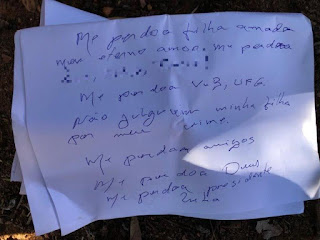 Me perdoa filha amada
meu eterno amor. me perdoa
Me perdoa UnB, UFG.
Não julguem minha filha
por meu crime.
Me perdoa amigos
Me perdoa Deus
Me perdoa presidente
Lula